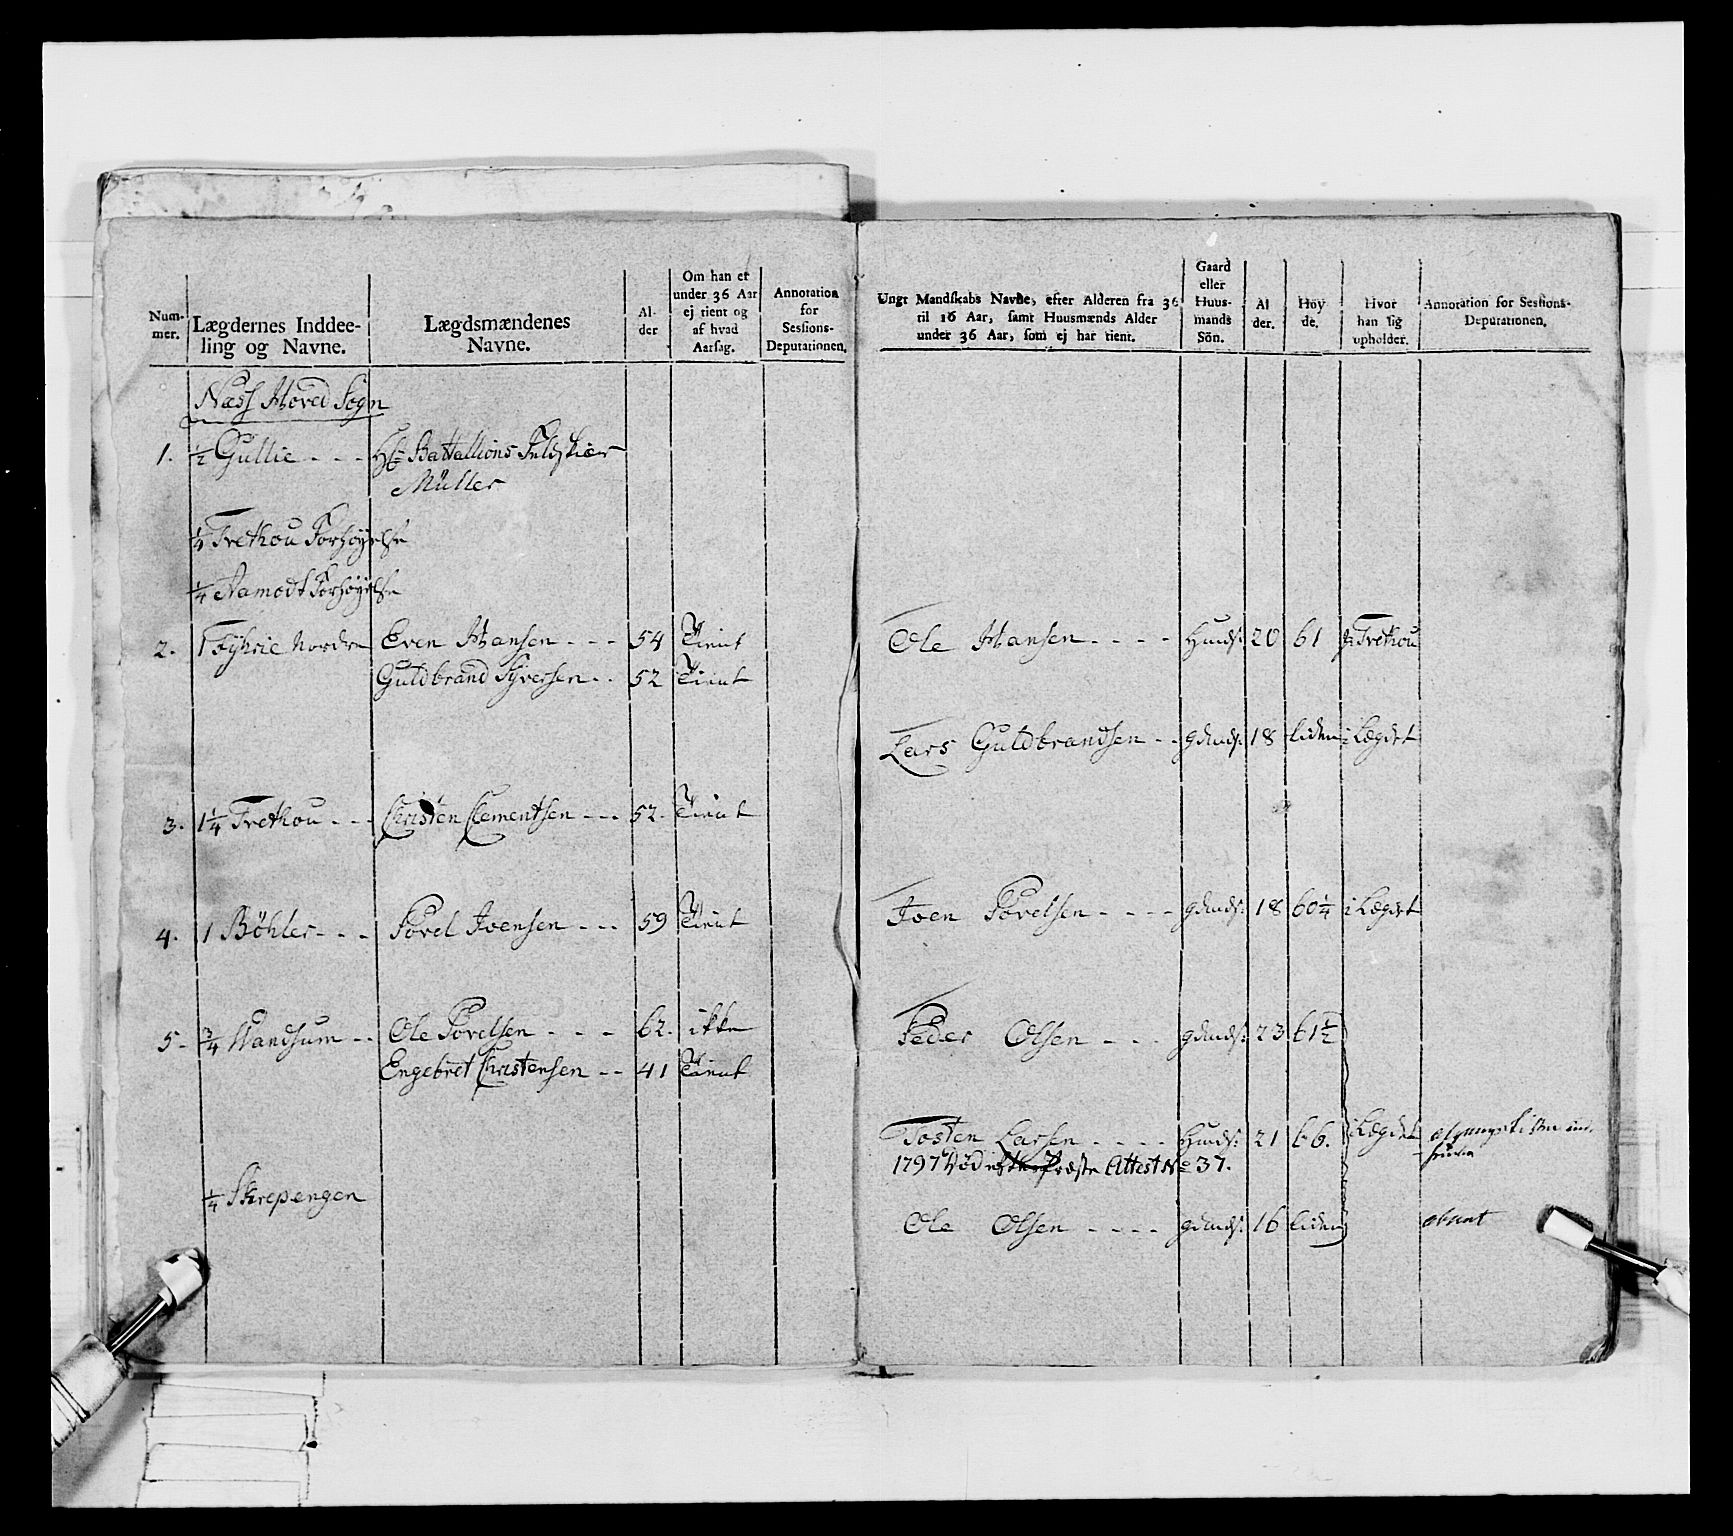 Num-
mer.
Lægdernes Inddee-
ling og Navne.
Lægdsmændenes
Navne.
Al-
der
Om han er
under 36 Aar
ej tient og
af hvad
Aarsag.
Annotation
for
Sessions-
Deputationen.
Næss Hoved Sogn
1. ½ Gullie - - - Hr Battallions Feldskiær
Müller
¼ Trethou Forhøyelse
¼ Aamodt Forhøyelse
2. 1 Fyhrie Nordre Even Hansen - - - 54 Tient
Guldbrand Syversen - - 52 Tient
3. 1¼ Trethou - - - Christen Clementsen - - - 52. Tient
4. 1 Böhler - - - Povel Joensen - - - 59 Tient
5. ¾ Wandsum - - Ole Povelsen - - - 62. ikke
Engebret Christensen - - 41 Tient
¼ Skrepengen
Ungt Mandskabs Navne, efter Alderen fra 36
til 16 Aar, samt Huusmænds Alder
under 36 Aar, som ej har tient.
Gaard
eller
Huus-
mands
Sön.
Al
der.
Höy
de.
Hvor
han sig
upholder.
Annotation for Sessions-
Deputationen.
Ole Hansen - - - - Huuds: 20 61 på Trethou
Lars Guldbrandsen - - gdmds: 18 liden i Lægdet
Joen Povelsen - - - - gdmds: 18 60¼ i Lægdet
Peder Olsen - - - gdmds: 23 61½
Tosten Larsen - - - - Huuds: 21 66. i Lægdet
1797 Död efter Præste Attest No 37.
Ole Olsen - - - - gdmds: 16 liden absent